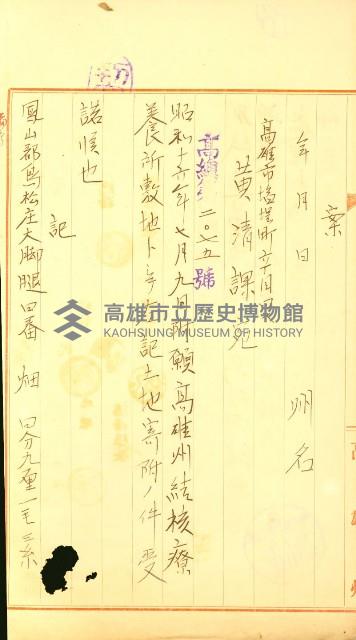 案
年月日
州名
高雄市塩埕町
黄清課宛
高 二〇七五號
昭和十六年七月九日附願高雄州結核療
養所敷地トシテ左記土地寄附ノ件受
諾候也
記
鳳山郡鳥松庄大脚腿四番 畑 四分九厘一毛三糸
高雄市立歷史博物館
KAOHSIUNG MUSEUM OF HISTORY